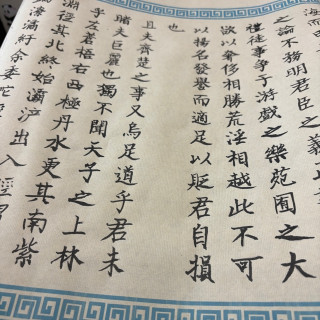 之論不務明君臣之義
禮徒事爭于游戲之樂苑囿之大
欲以奢侈相勝荒淫相越此不可
以揚名發譽而適足以貶君自損
也
且夫齊楚之事又烏足道乎君未
睹夫巨麗也獨不聞天子之上林
乎左蒼梧右西極丹水更其南紫
淵徑其北終始灞滻出入涇渭
潏紆余委蛇